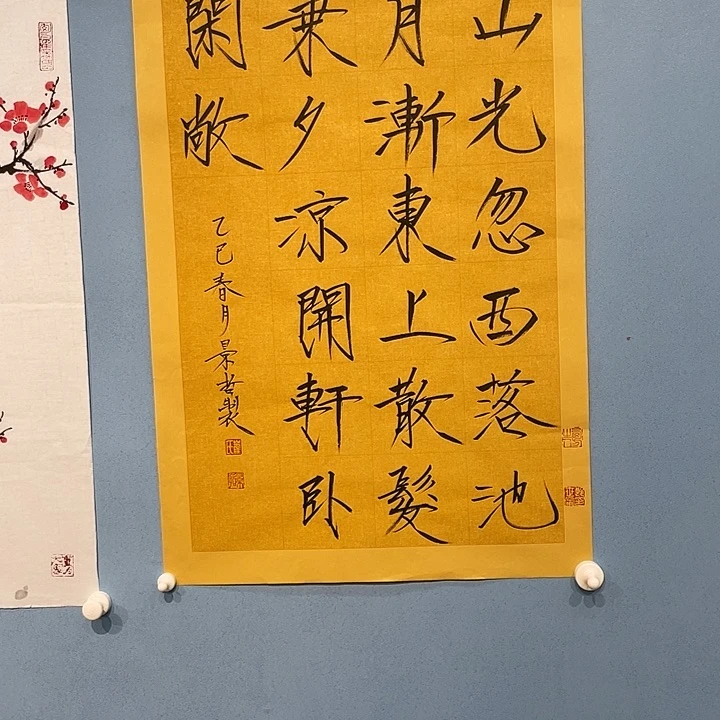 山光忽西落池
月漸東上散髮
乘夕涼開軒卧
閑敞
乙巳春月景製